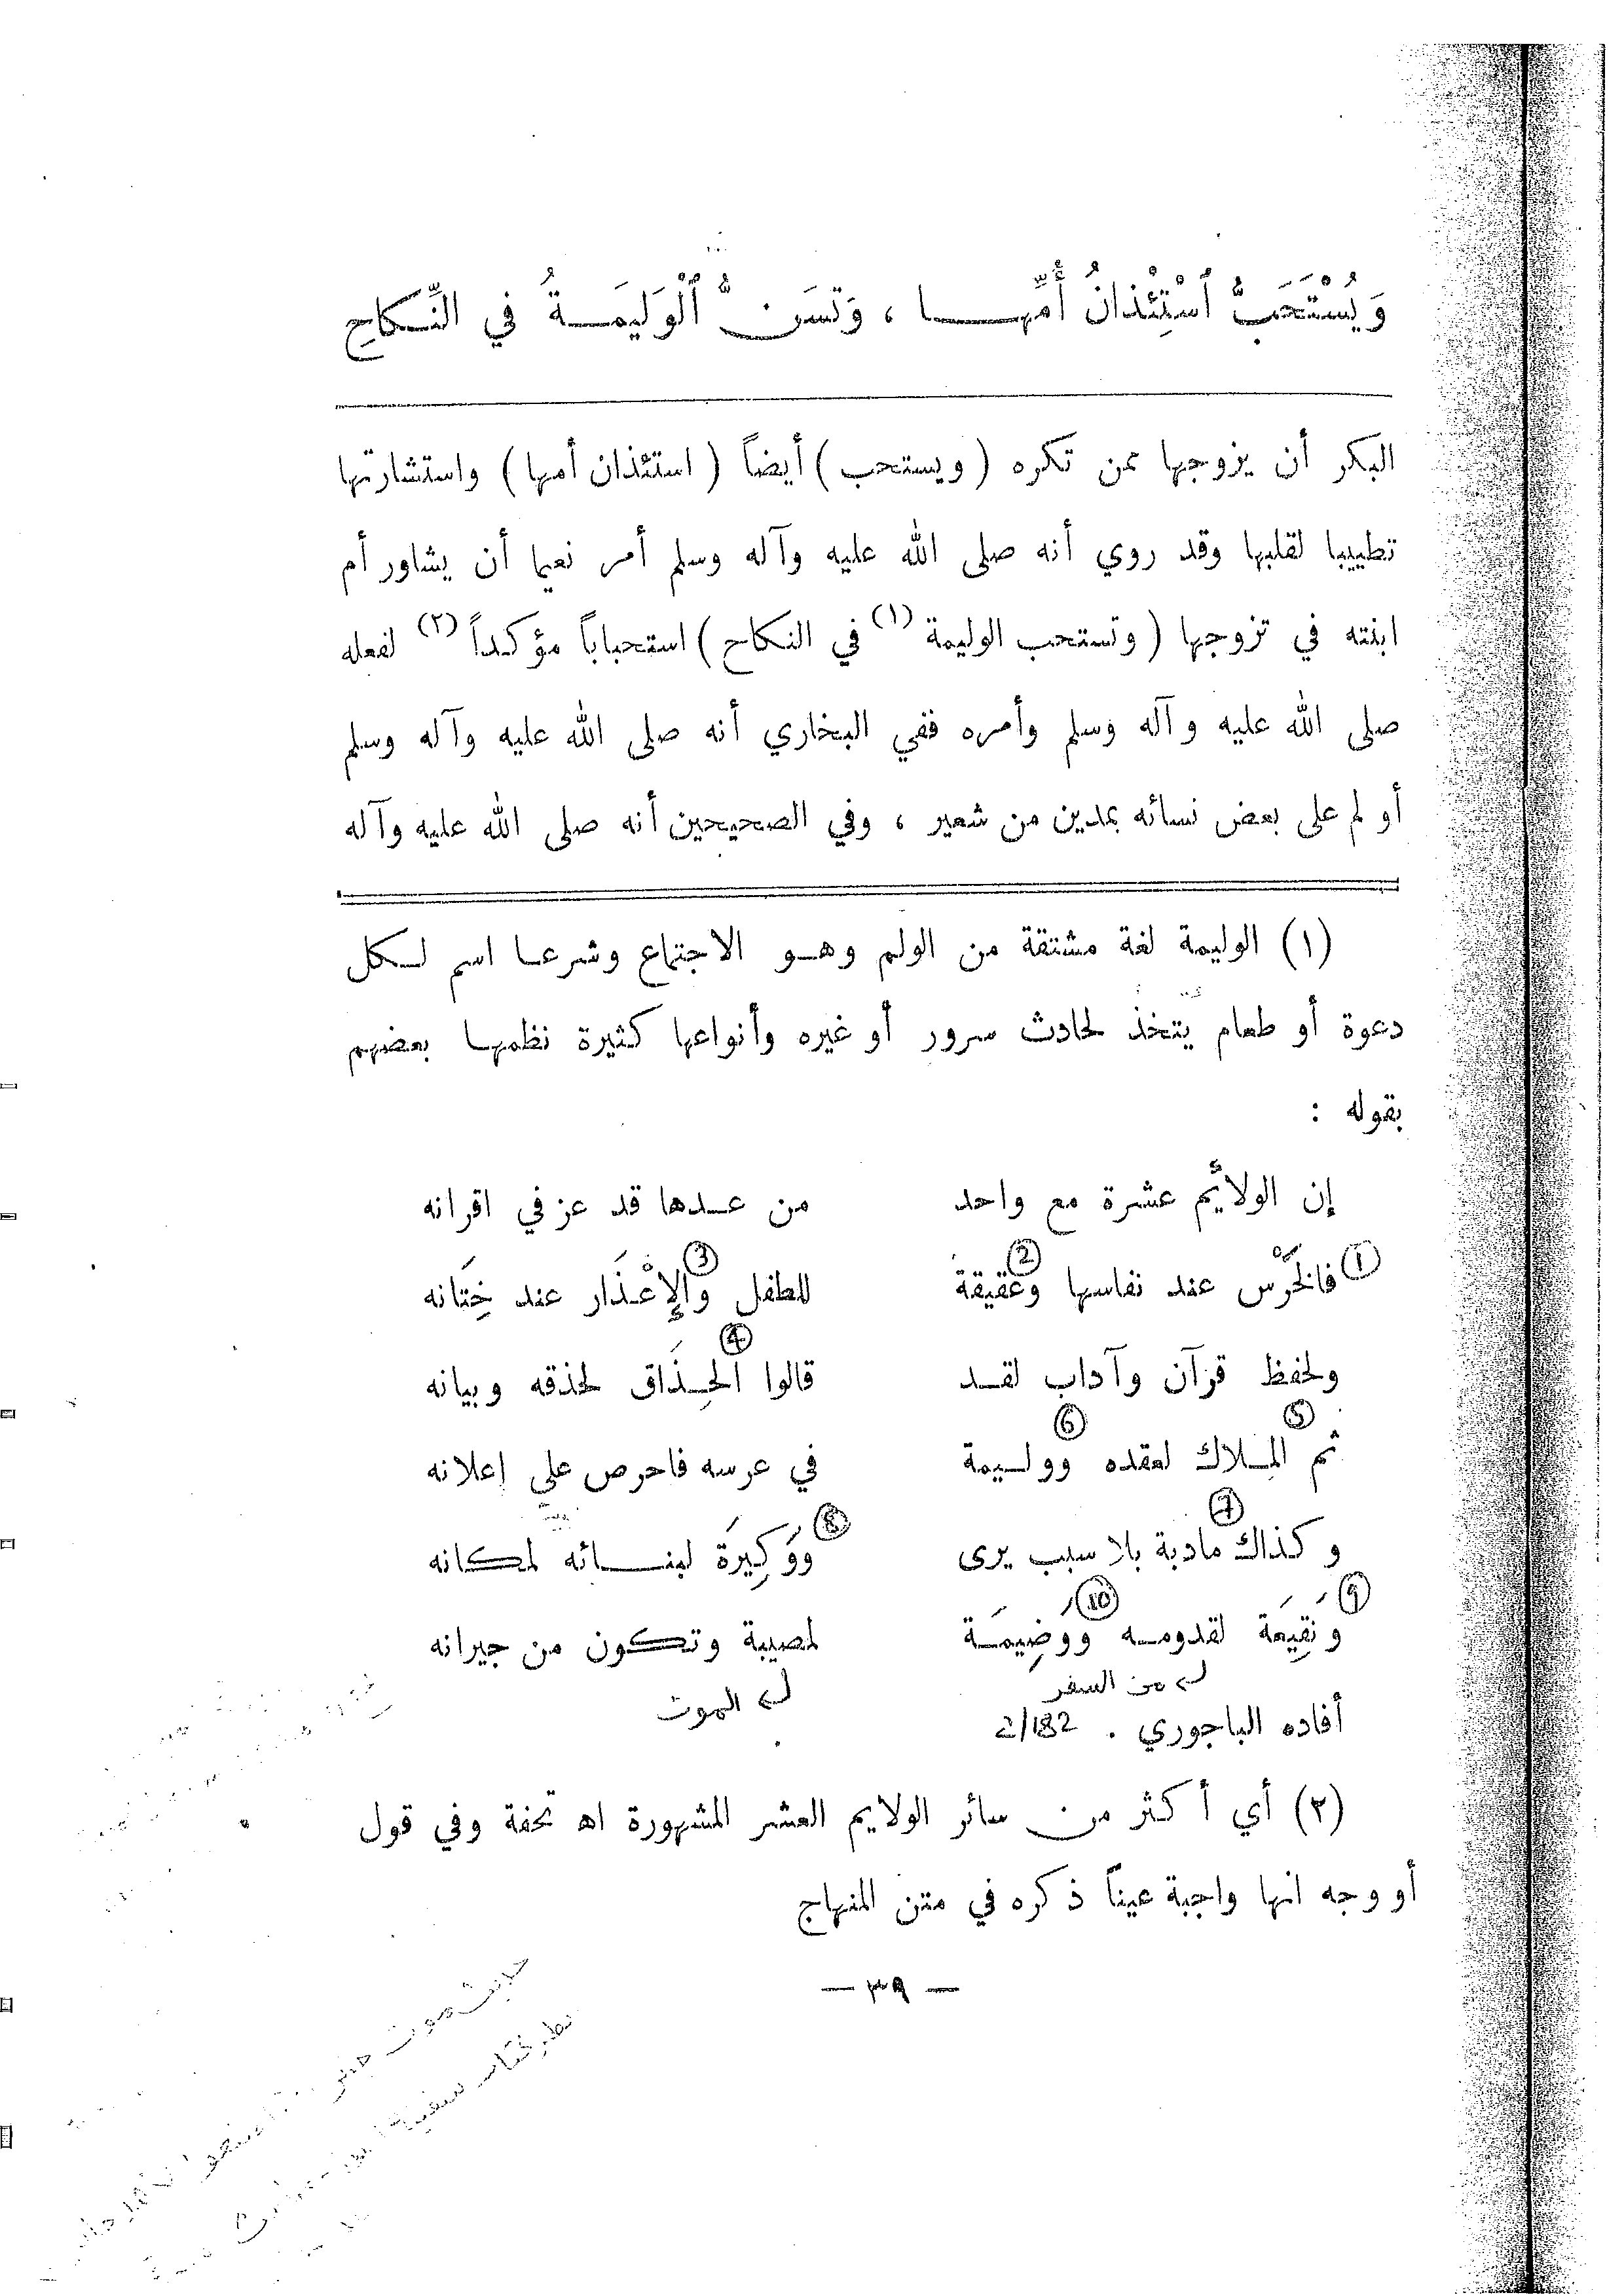 وَيُسْتَحَبُّ ٱسْتِئْذانُ أُمِّهـا ، وَتُسَنُّ ٱلْوَلِيمَـةُ في النِّـكاحِ
البكر أن يزوجها ممن تكره ( ويستحب ) أيضاً ( استئذان أمها ) واستشارتها
تطييبا لقلبها وقد روي أنه صلى الله عليه وآله وسلم أمر نعيما أن يشاور أم
ابنته في تزوجها ( وتستحب الوليمة (١) في النكاح ) استحباباً مؤكداً (٢) لفعله
صلى الله عليه وآله وسلم وأمره ففي البخاري أنه صلى الله عليه وآله وسلم
أولم على بعض نسائه بمدين من شعير ، وفي الصحيحين أنه صلى الله عليه وآله
(١) الوليمة لغة مشتقة من الولم وهـو الاجتماع وشرعـا اسم لـكل
دعوة أو طعام يتخذ لحادث سرور أو غيره وأنواعها كثيرة نظمهـا بعضهم
بقوله :
إن الولائم عشرة مع واحد من عـدها قد عز في اقرانه
① فالخُرْس عند نفاسها ② وعَقيقة للطفل ③ والإعْـذَار عند خِتَانه
ولحفظ قرآن وآداب لقـد قالوا ④ الحِـذَاق لحذقه وبيانه
ثم ⑤ المِـلاك لعقده ⑥ وولـيمة في عرسه فاحرص على إعلانه
وكذاك ⑦ مادبة بلا سبب يرى ⑧ ووَكِيرَة لبنـــائه لمكانه
⑨ ونَقِيعَة لقدومـه ⑩ ووضِيمَـة لمصيبة وتكون من جيرانه
له من السفر
له الموت
أفاده الباجوري . 2/132
(٢) أي أكثر من سائر الولايم العشر المشهورة اه تحفة وفي قول
أو وجه انها واجبة عيناً ذكره في متن المنهاج
— ٣٩ —